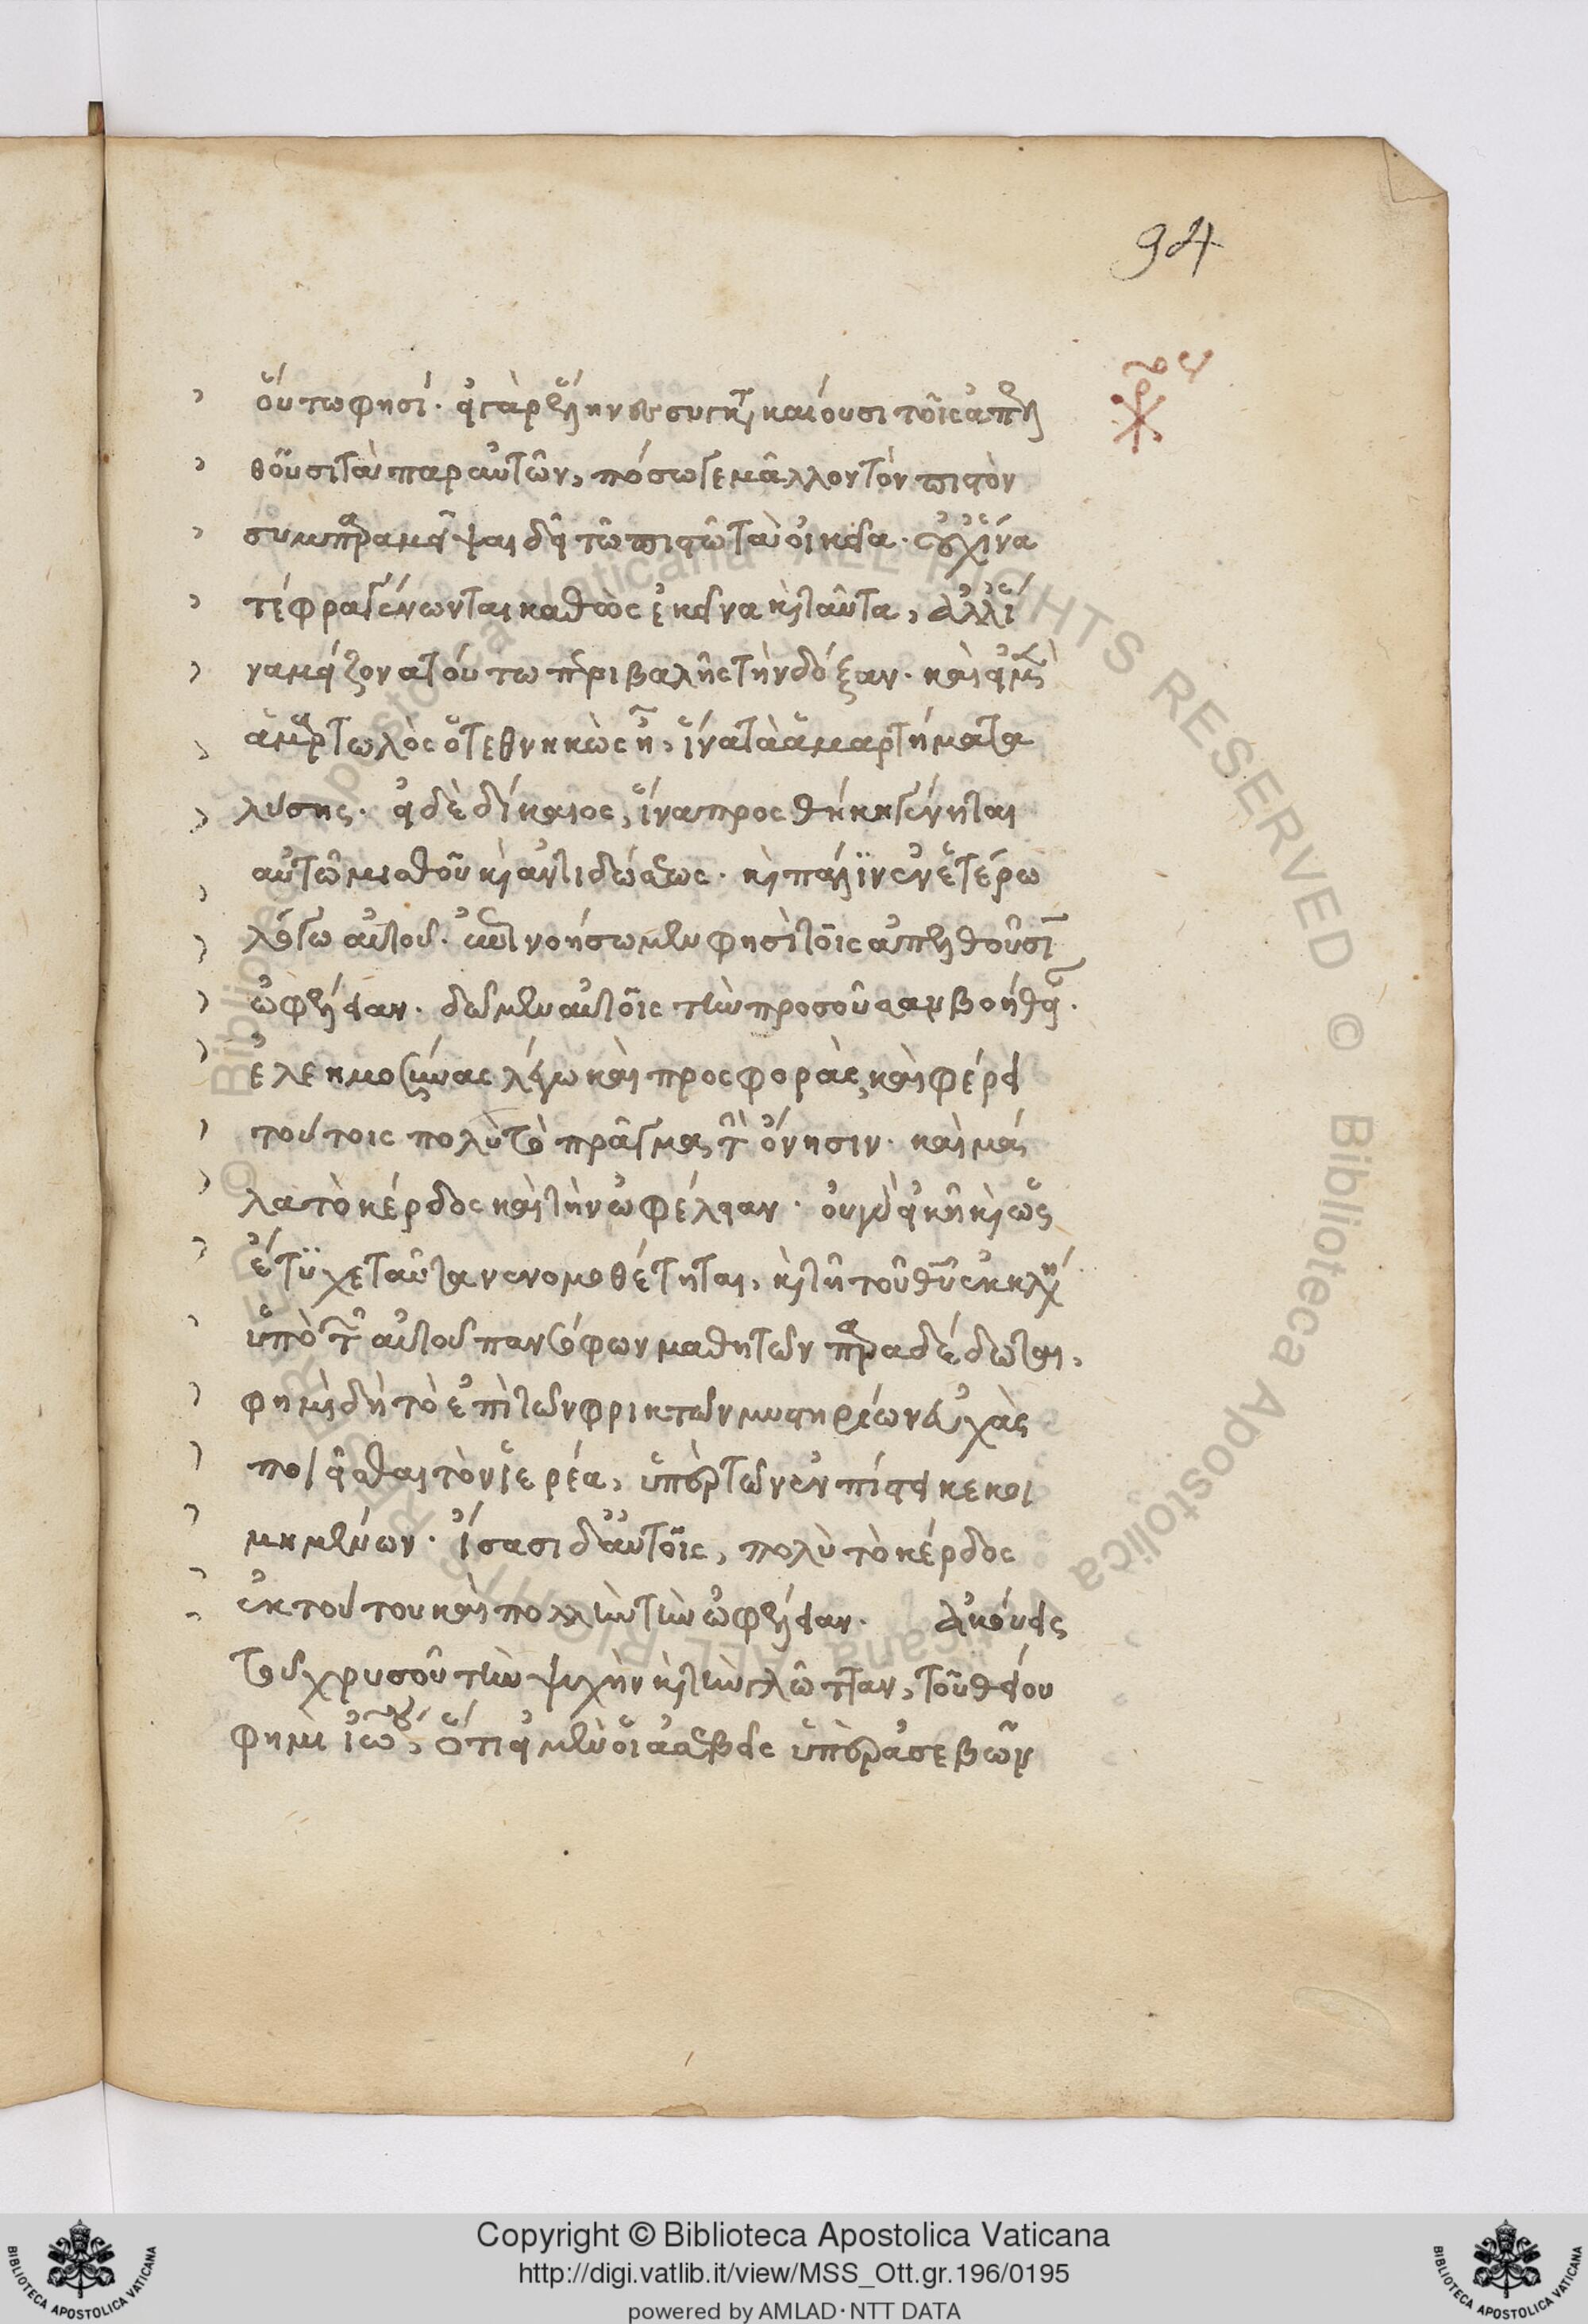 94
οὕτω φησί· εἰ γὰρ ἕλληνες συγκατακαίουσι τοῖς ἀπελ
θοῦσι τὰ παρ αὐτῶν, πόσω γε μᾶλλον τὸν πιστὸν
συμπαραπέμψαι δεῖ τῶ πιστῶ τὰ οἰκεῖα· οὐχ ἵνα
τέφρα γένωνται καθὼς ἐκεῖνα καὶ ταῦτα, ἀλλ ἵ
να μείζονα τούτω περιβαλῆς τὴν δόξαν· καὶ εἰ μὲν
ἁμαρτωλὸς ὁ τεθνηκὼς ἦ, ἵνα τὰ ἁμαρτήματα
λύσης· εἰ δὲ δίκαιος, ἵνα προσθήκη γένηται
αὐτῶ μισθοῦ καὶ ἀντιδόσεως· καὶ πάλιν ἐν ἑτέρω
λόγω αὐτοῦ· ἐπινοήσωμεν φησὶ τοῖς ἀπελθοῦσιν
ὠφέλειαν· δῶμεν αὐτοῖς τὴν προσοῦσαν βοήθειαν·
ἐλεημοσύνας λέγω καὶ προσφοράς, καὶ φέρει
τούτοις πολὺ τὸ πρᾶγμα τὴν ὄνησιν· καὶ μέγα
λα τὸ κέρδος καὶ τὴν ὠφέλειαν· οὐ γὰρ εἰκῆ καὶ ὡς
ἔτυχε ταῦτα νενομοθέτηται, καὶ τῆ τοῦ θῦ ἐκκλησία
ὑπὸ τῶν αὐτοῦ πανσόφων μαθητῶν παραδέδωται,
φημὶ δὴ τὸ ἐπὶ τῶν φρικτῶν μυστηρίων εὐχὰς
ποιεῖσθαι τὸν ἱερέα, ὑπὲρ τῶν ἐν πίστει κεκοι
μημένων· ἴσασι δ αὐτοῖς, πολὺ τὸ κέρδος
ἐκ τούτου καὶ πολλὴν τὴν ὠφέλειαν· ἀκούεις
τοῦ χρυσοῦ τὴν ψυχὴν καὶ τὴν γλῶτταν, τοῦ θείου
φημὶ ἰω, ὅτι εἰ μὲν οἱ ἀσεβεῖς ὑπὲρ ἀσεβῶν
Copyright © Biblioteca Apostolica Vaticana
http://digi.vatlib.it/view/MSS_Ott.gr.196/0195
powered by AMLAD·NTT DATA